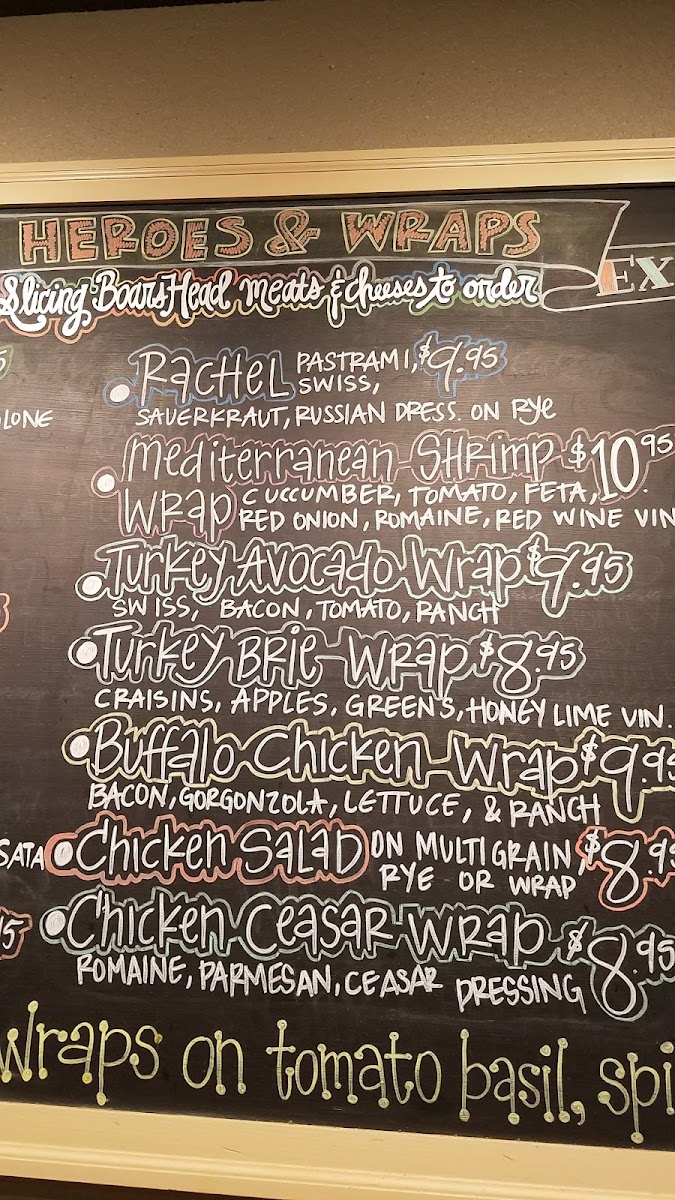 HEROES & WRAPS
EX
Slicing Boars Head meats & cheeses to order
5
LONE
RACHEL PASTRAMI, $9.95
SWISS,
SAUERKRAUT, RUSSIAN DRESS. ON RYE
Mediterranean SHRIMP $10.95
WRAP CUCCUMBER, TOMATO, FETA,
RED ONION, ROMAINE, RED WINE VIN
Turkey Avocado Wrap $9.95
SWISS, BACON, TOMATO, RANCH
Turkey BRIE WRAP $8.95
CRAISINS, APPLES, GREENS, HONEY LIME VIN.
Buffalo Chicken Wrap $9.95
BACON, GORGONZOLA, LETTUCE, & RANCH
SATA
Chicken SALAD ON MULTIGRAIN, $8.95
RYE OR WRAP
Chicken CEASAR WRAP $8.95
ROMAINE, PARMESAN, CEASAR DRESSING
wraps on tomato basil, spi